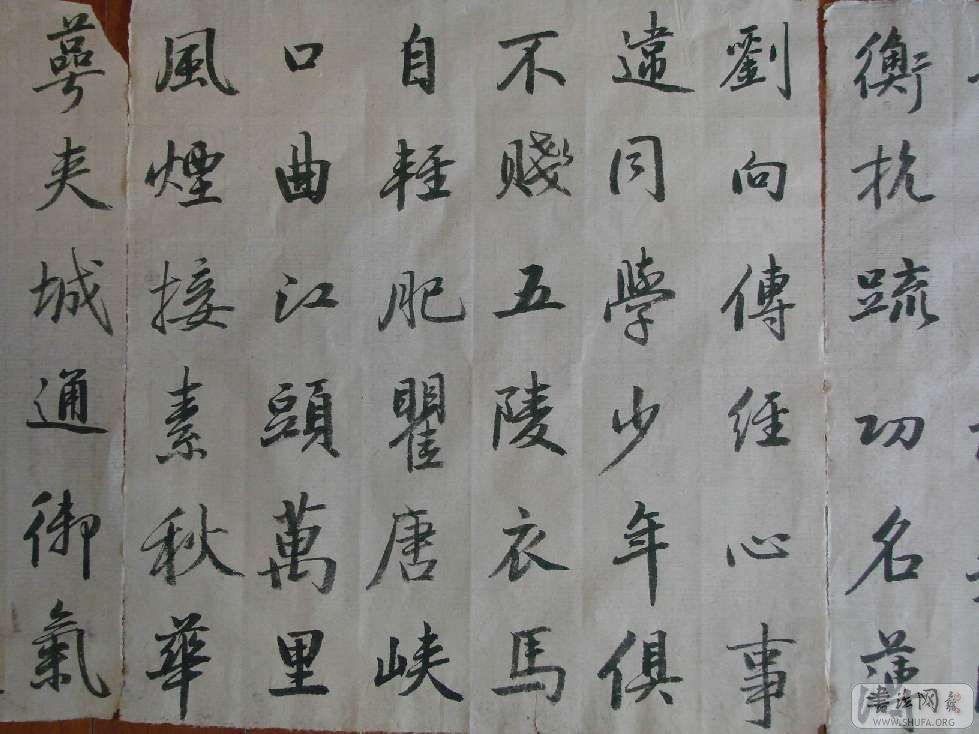 衡抗疏功名薄
劉向傳經心事
違同學少年俱
不賤五陵衣馬
自輕肥瞿唐峽
口曲江頭萬里
風煙接素秋華
萼夾城通御氣
書法网
WWW.SHUFA.ORG